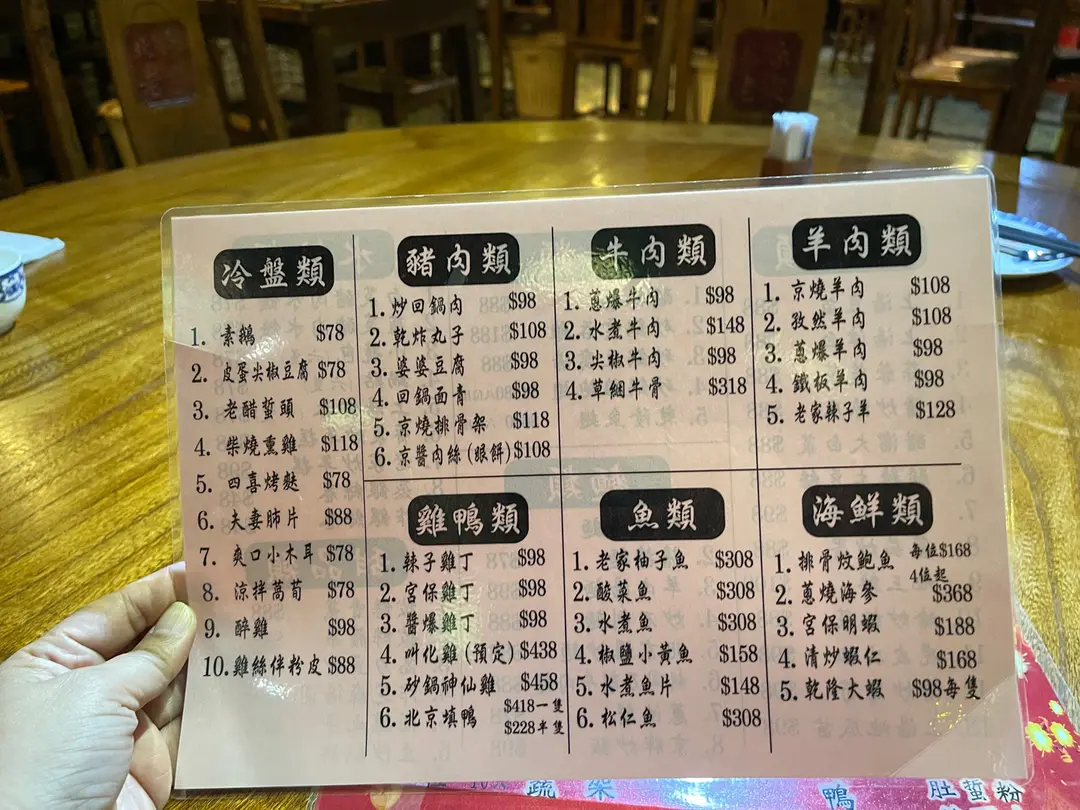 冷盤類
1. 素鵝 $78
2. 皮蛋尖椒豆腐 $78
3. 老醋蜇頭 $108
4. 柴燒熏雞 $118
5. 四喜烤麩 $78
6. 夫妻肺片 $88
7. 爽口小木耳 $78
8. 涼拌萵荀 $78
9. 醉雞 $98
10. 雞絲伴粉皮 $88
豬肉類
1. 炒回鍋肉 $98
2. 乾炸丸子 $108
3. 婆婆豆腐 $98
4. 回鍋面青 $98
5. 京燒排骨架 $118
6. 京醬肉絲(眼餅) $108
牛肉類
1. 蔥爆牛肉 $98
2. 水煮牛肉 $148
3. 尖椒牛肉 $98
4. 草綑牛骨 $318
羊肉類
1. 京燒羊肉 $108
2. 孜然羊肉 $108
3. 蔥爆羊肉 $98
4. 鐵板羊肉 $98
5. 老家辣子羊 $128
雞鴨類
1. 辣子雞丁 $98
2. 宮保雞丁 $98
3. 醬爆雞丁 $98
4. 叫化雞(預定) $438
5. 砂鍋神仙雞 $458
6. 北京填鴨 $418一隻
$228半隻
魚類
1. 老家柚子魚 $308
2. 酸菜魚 $308
3. 水煮魚 $308
4. 椒鹽小黃魚 $158
5. 水煮魚片 $148
6. 松仁魚 $308
海鮮類
1. 排骨炆鮑魚 每位$168
4位起
2. 蔥燒海參 $368
3. 宮保明蝦 $188
4. 清炒蝦仁 $168
5. 乾隆大蝦 $98每隻